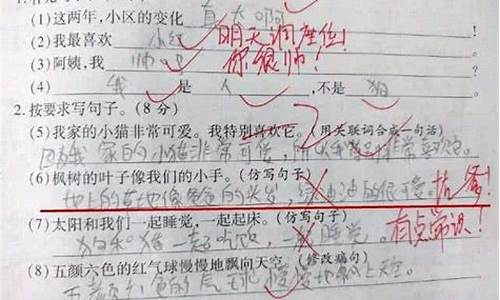 (1)这两年,小区的变化 真大啊
(2)我最喜欢 小红 明天调座位!
(3)阿姨,我 帅吧 你很帅!
(4) 我 是 人 ,不是 狗
2.按要求写句子。(8 分)
(5)我家的小猫非常可爱。我特别喜欢它。(用关联词合成一句话)
因为我家的小猫非常可爱,所以我特别非常喜欢它。
(6)枫树的叶子像我们的小手。(仿写句子)
地上的草地像爸爸的头发,绿油油的很可爱。找爹!
(7)太阳和我们一起睡觉,一起起床。(仿写句子)
狗和猪一起吃饭,一起睡觉。有点常识!
(8)五颜六色的红气球慢慢地飘向天空。(修改病句)
五颜六色的气球慢慢地飘上天空。